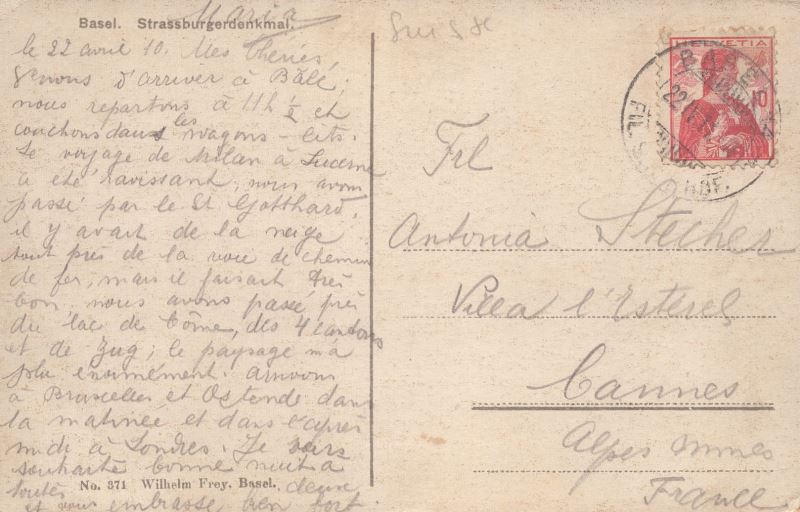 Basel. Strassburgerdenkmal.
Maria
Suisse
le 22 avril 10. Mes Chéries,
nous d'arriver à Bâle,
nous repartons à 11h ½ et
couchons dans les wagons-lits.
Le voyage de Milan à Lucerne
a été ravissant, nous avons
passé par le St Gotthard,
il y avait de la neige
tout près de la voie de chemin
de fer, mais il faisait très
bon, nous avons passé près
du lac de Côme, des 4 cantons
et de Zug; le paysage m'a
plu énormément. arrivons
à Bruxelles et Ostende dans
la matinée et dans l'après
midi à Londres. Je vous
souhaite bonne nuit à
toutes deux
et vous embrasse bien fort.
No. 371 Wilhelm Frey, Basel.
HELVETIA
10
BASEL
22
FIL. HBF.
Frl
Antonia Stecher
Villa l'Esterel
Cannes
Alpes mmes
France